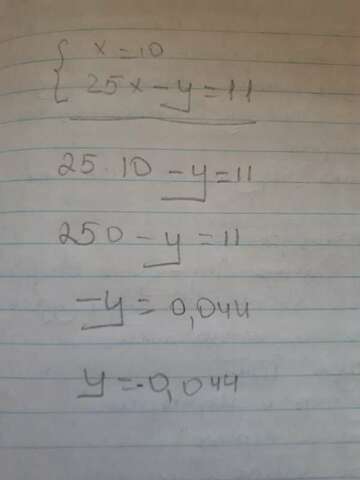 { x = 10
25x - y = 11
25 10 - y = 11
250 - y = 11
-y = 0,044
y = -0,044